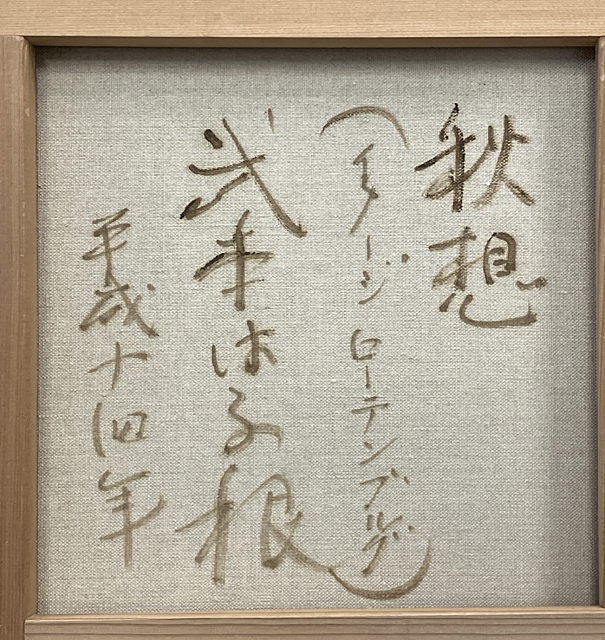 秋想
(イメージ ローテンブルグ)
武本はる根
平成十四年